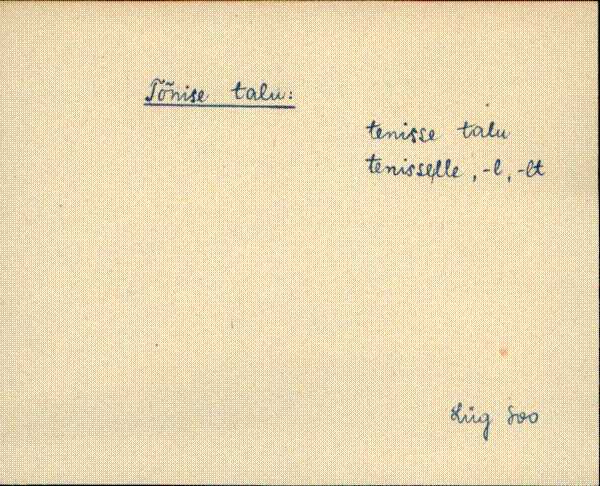 Tõnise talu:
tenisse talu
tenisselle, -l, -lt
Lüg Soo